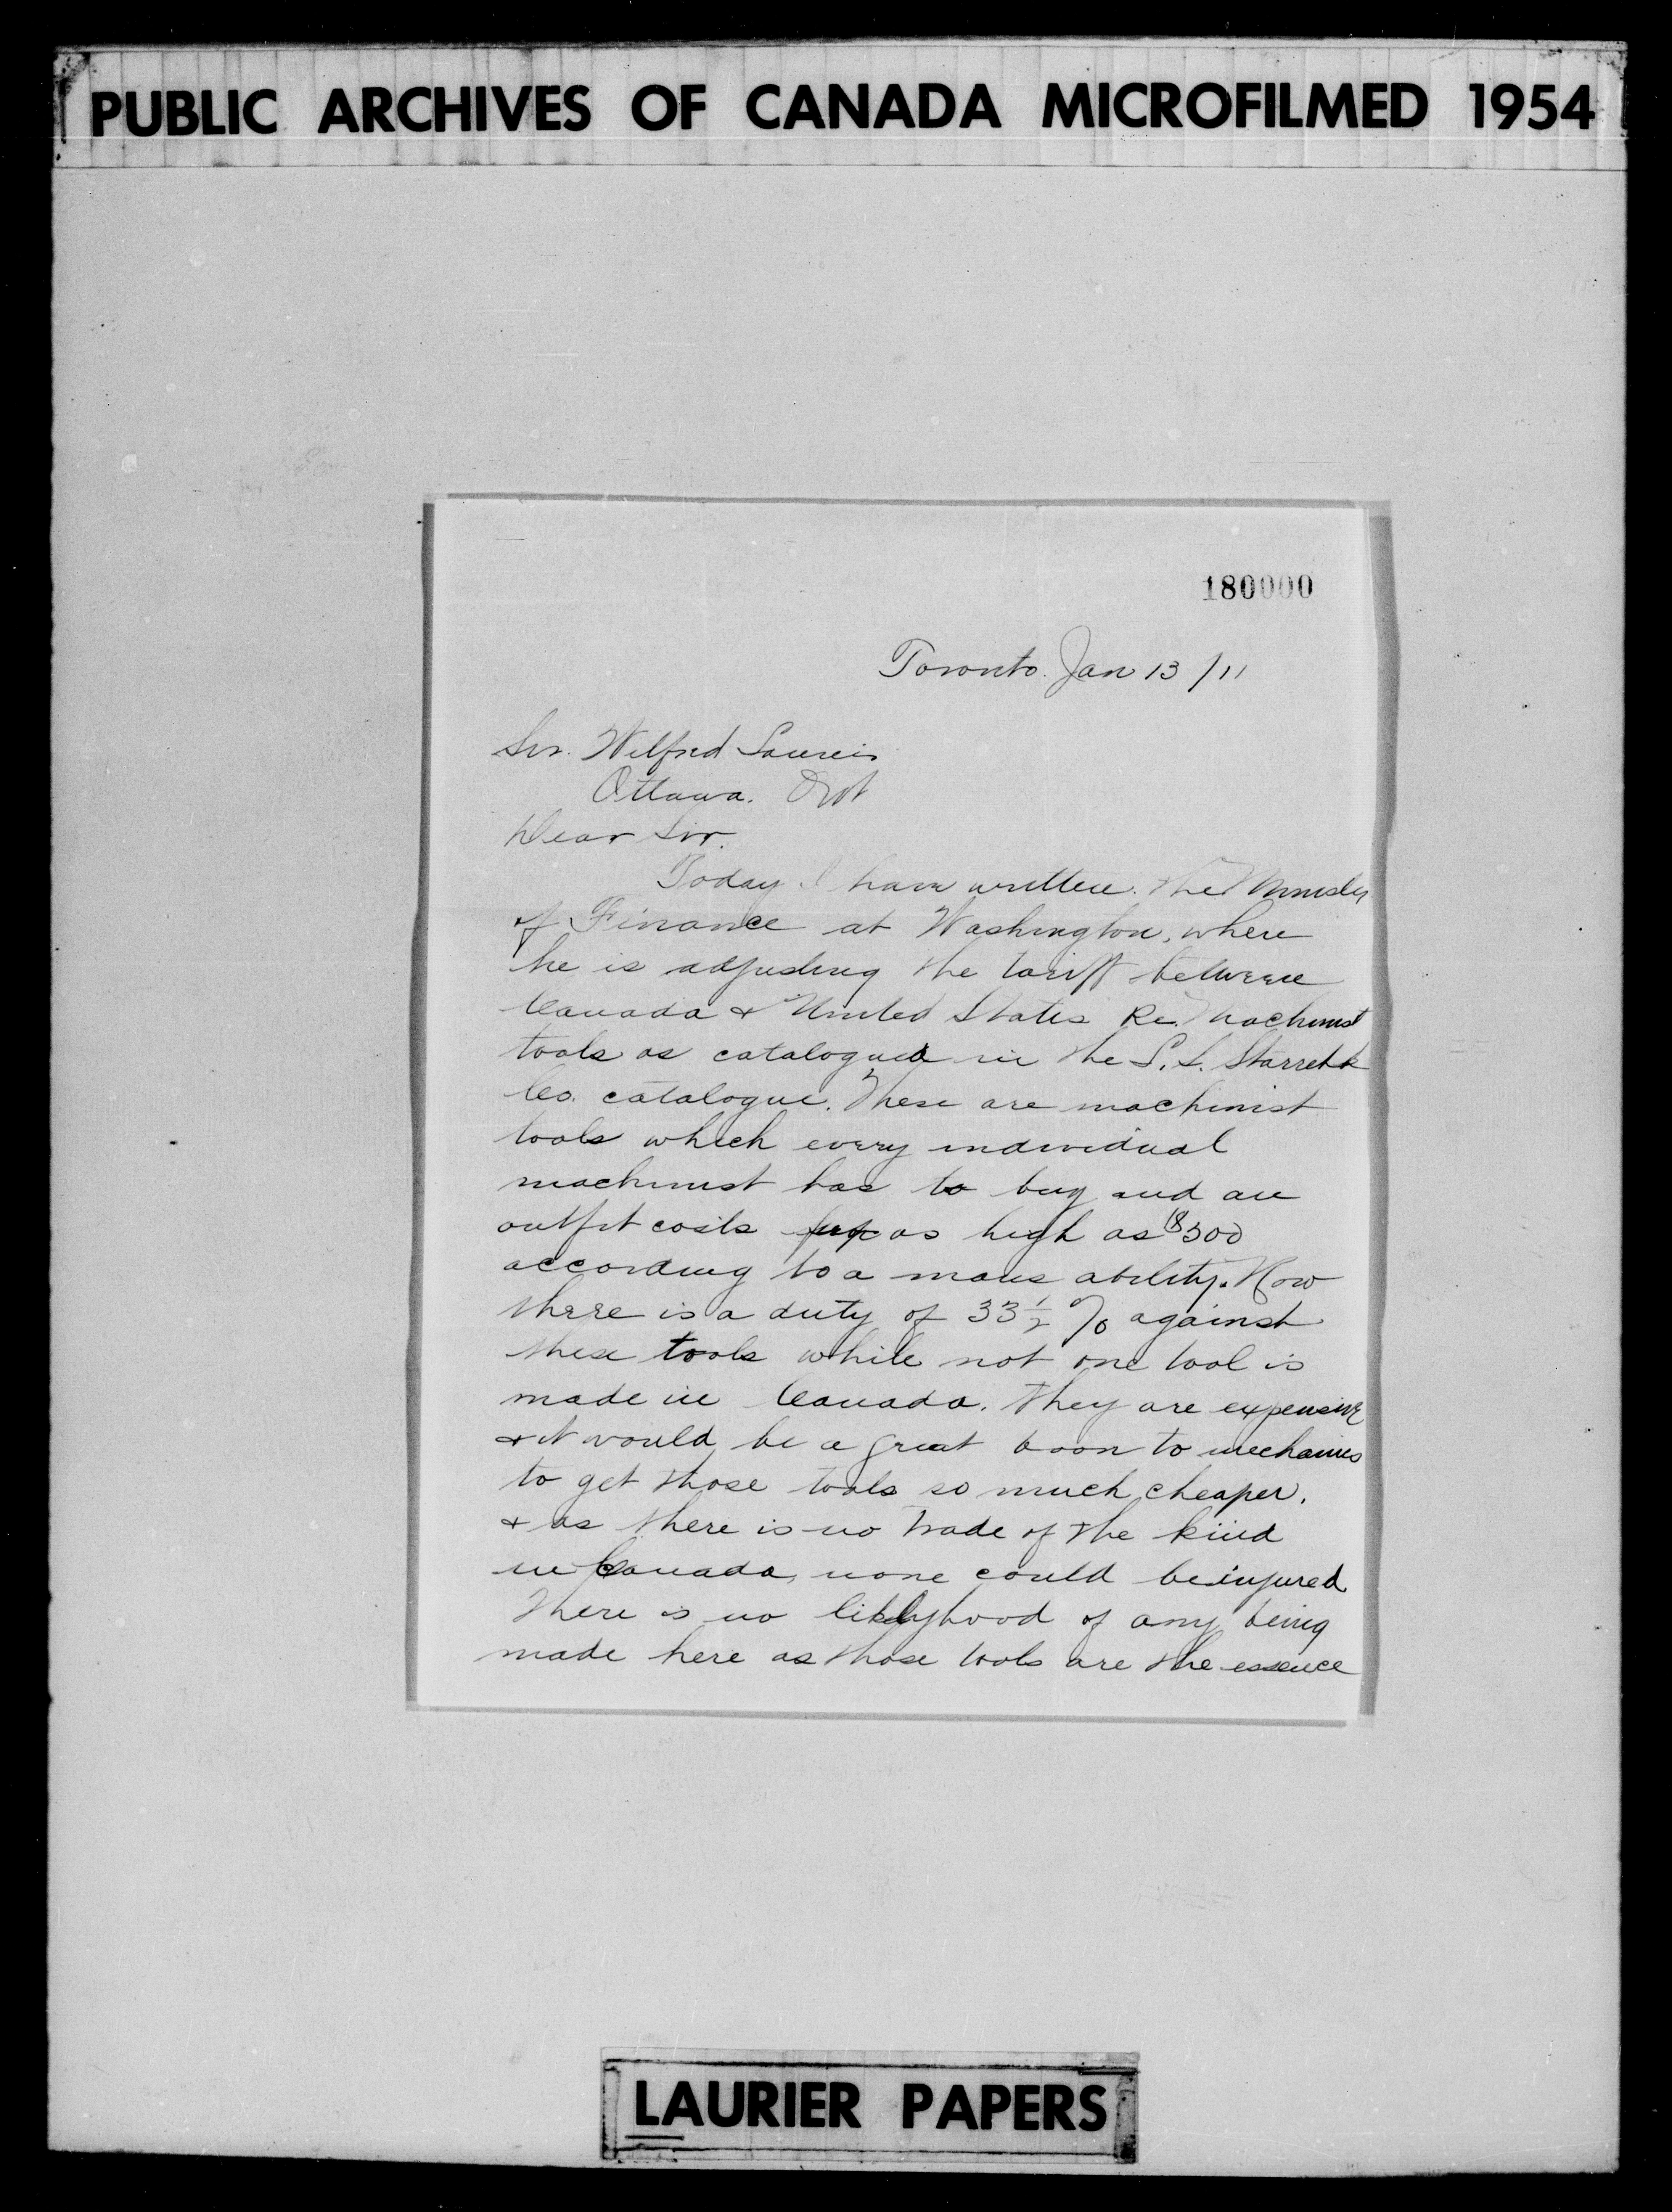 PUBLIC ARCHIVES OF CANADA MICROFILMED 1954
180000
Toronto. Jan 13 /11
Sir. Wilfred Laurier
Ottawa. Ont
Dear Sir.
Today I have written the Minister
of Finance at Washington, where
he is adjusting the tariff between
Canada & United States Re. Machinist
tools as catalogued in the L. S. Starrett
Co. catalogue. These are machinist
tools which every individual
machinist has to buy and an
outfit costs as high as $300
according to a mans ability. Now
there is a duty of 33 1/2 % against
these tools while not one tool is
made in Canada. They are expensive
& it would be a great boon to mechanics
to get those tools so much cheaper.
& as there is no trade of the kind
in Canada, none could be injured
There is no liklyhood of any being
made here as those tools are the essence
LAURIER PAPERS